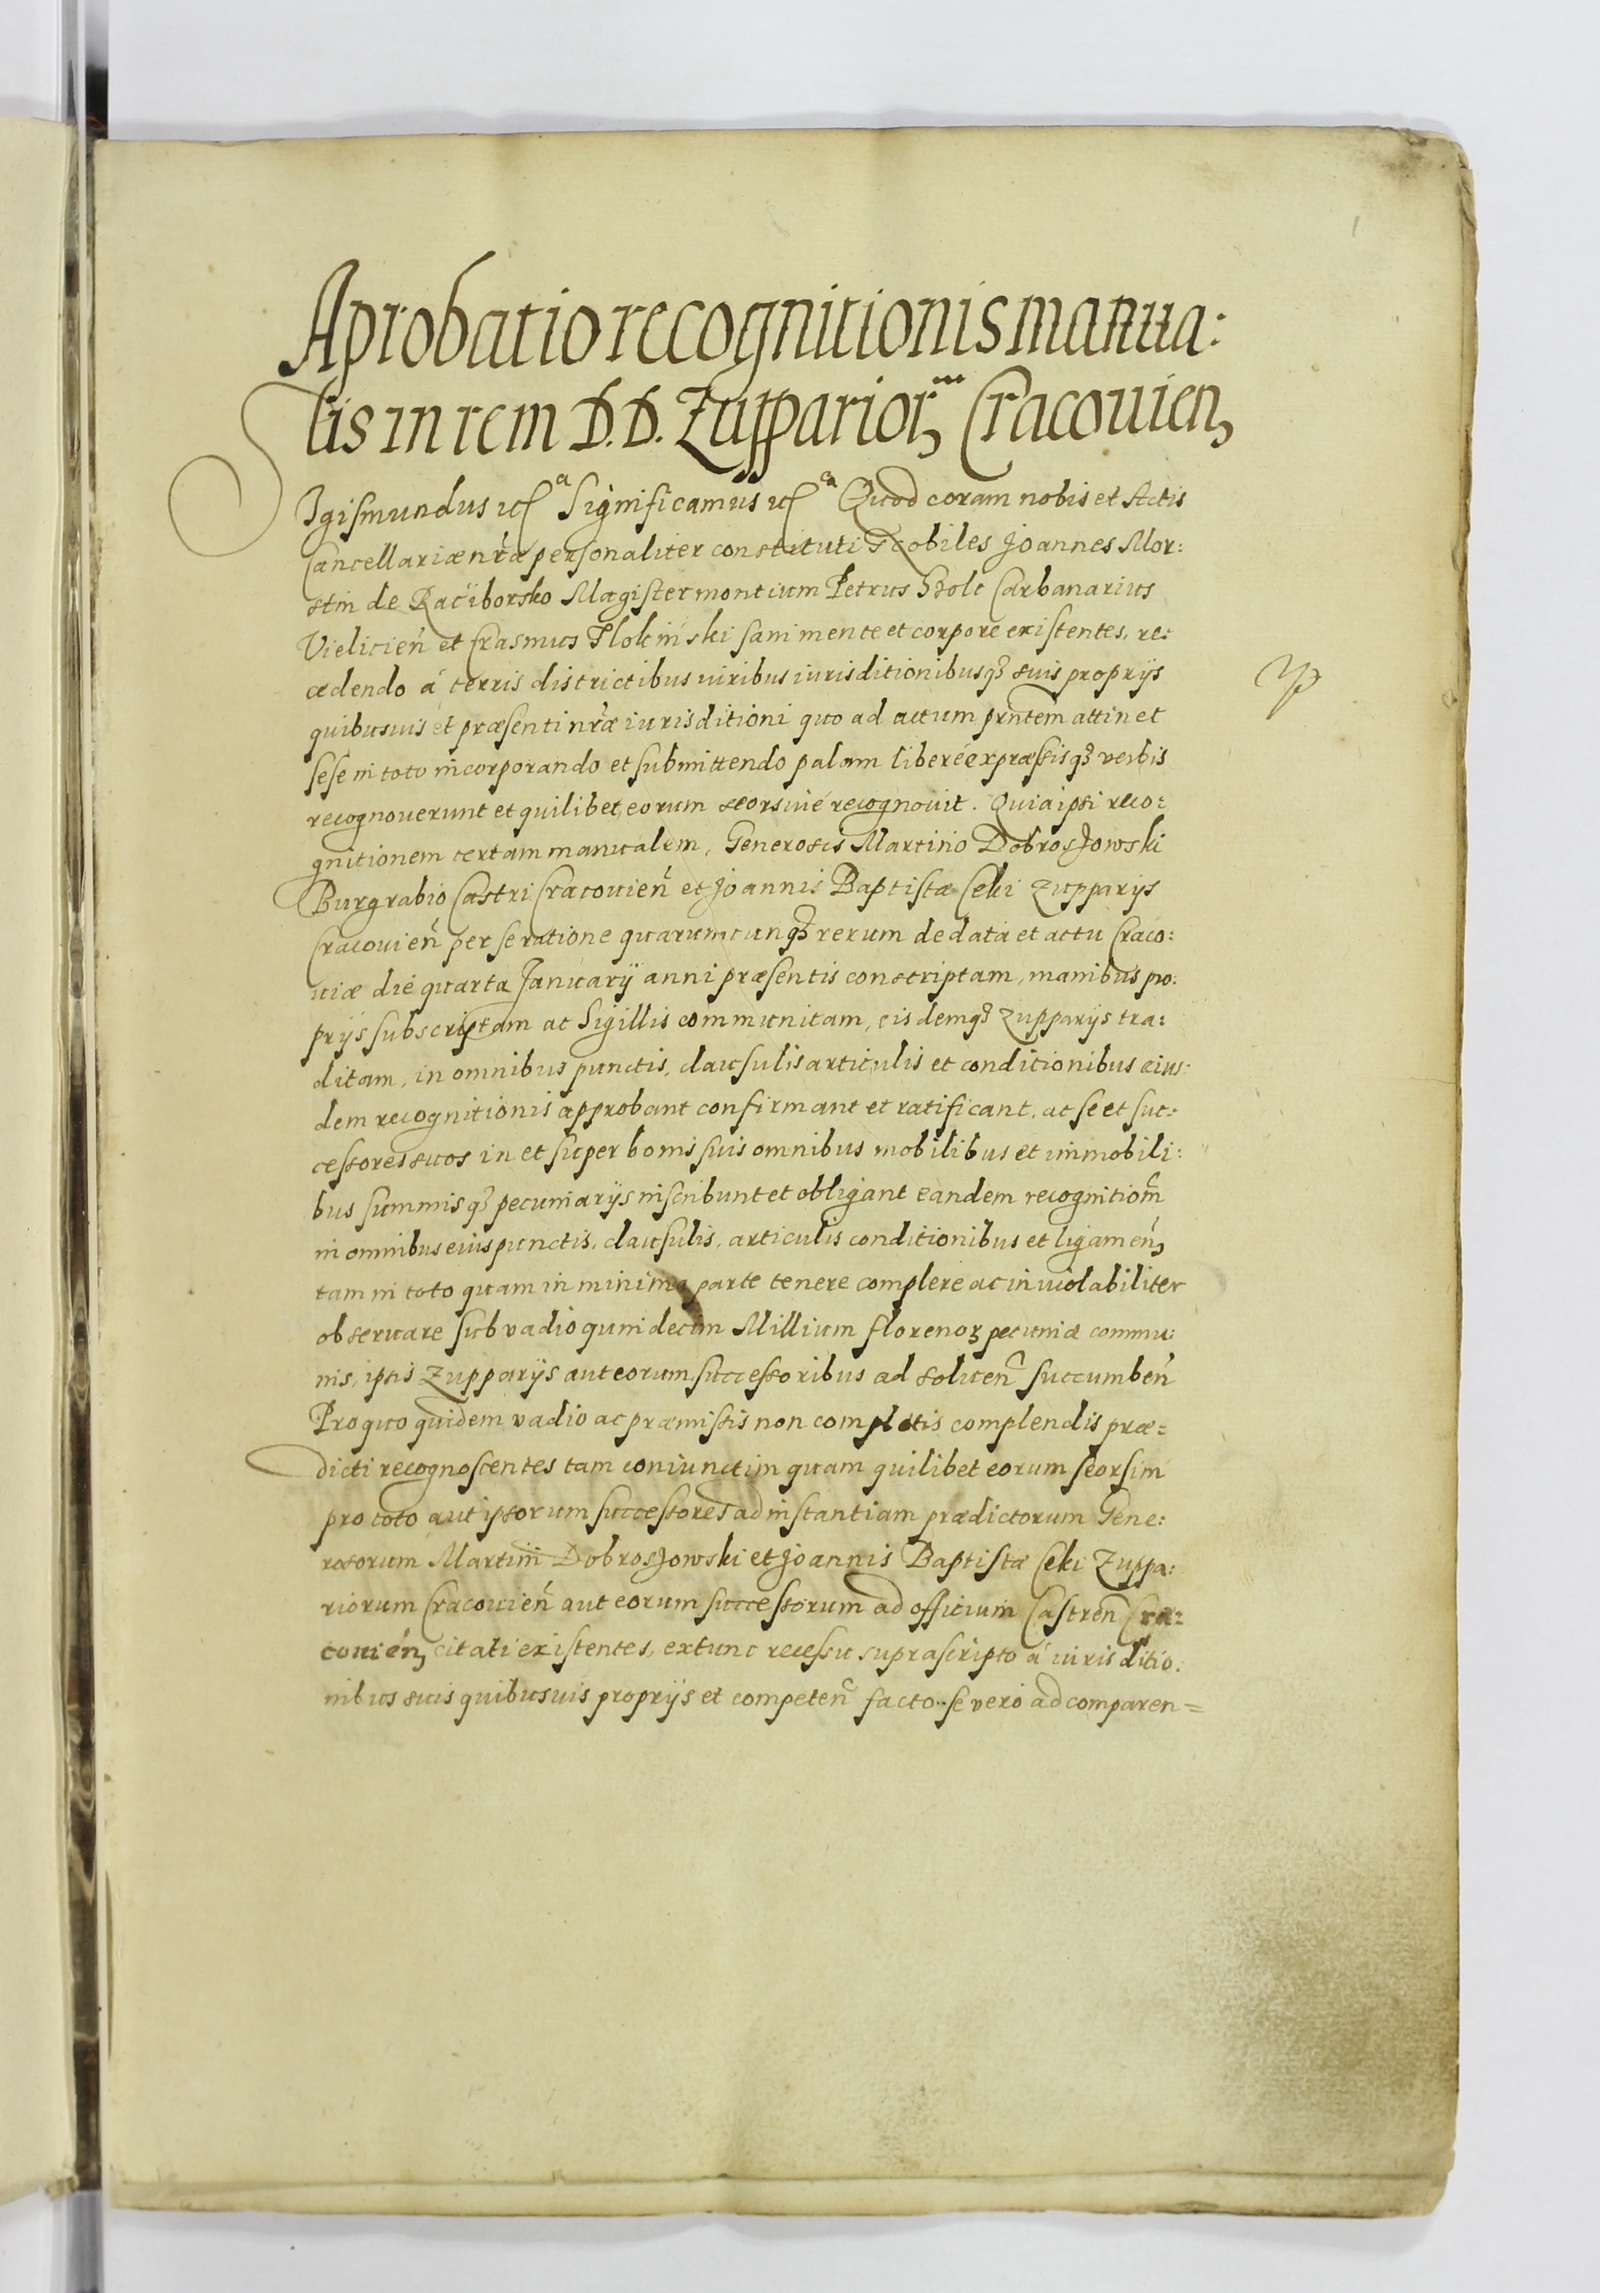 1
Aprobatio recognitionis manua:
lis in rem D. D. Zupparior Cracouien
Sigismundus etc Significamus etc Quod coram nobis et Actis
Cancellariæ nræ personaliter constituti Nobiles Joannes Mor:
stin de Raciborsko Magister montium Petrus Carbanarius
Vielicien et Erasmus sani mente et corpore existentes, re:
cedendo á terris districtibus iuribus iurisditionibusq suis proprijs
quibusuis et præsenti nræ iurisditioni quo ad actum prntem attinet
sese in toto incorporando et submittendo palam liberé expræssisq verbis
recognouerunt et quilibet eorum recognouit. Quia ipsi reco:
gnitionem certam manualem, Generosis Martino Dobrosjowski
Burgrabio Castri Cracouien et Joannis Baptistæ Ceki Zupparijs
Cracouien per se ratione quarumcunq rerum de data et actu Craco:
uiæ die quarta Januarij anni præsentis conscriptam, manibus pro:
prijs subscriptam ac Sigillis communitam, eisdemq Zupparijs tra:
ditam, in omnibus punctis, clausulis articulis et conditionibus eius:
dem recognitionis approbant confirmant et ratificant, ac se et suc:
cessores suos in et super bonis suis omnibus mobilibus et immobili:
bus summisq pecuniarijs inscribunt et obligant eandem recognitiom
in omnibus eius punctis, clausulis, articulis conditionibus et ligamen
tam in toto quam in minima parte tenere complere ac inuiolabiliter
obseruare sub vadio quindecim Millium florenor pecuniæ commu:
nis, ipsis Zupparijs aut eorum successoribus ad soluen succumben
Pro quo quidem vadio ac præmissis non completis complendis præ=
dicti recognoscentes tam coniunctim quam quilibet eorum seorsim
pro toto aut ipsorum successores ad instantiam prædictorum Gene:
rosorum Martini Dobrosjowski et Joannis Baptistæ Ceki Zuppa:
riorum Cracouien aut eorum successorum ad officium Castren Cra:
couien citati existentes, extunc recessu suprascripto á iurisditio:
nibus suis quibusuis proprijs et competen facto se vero ad comparen=